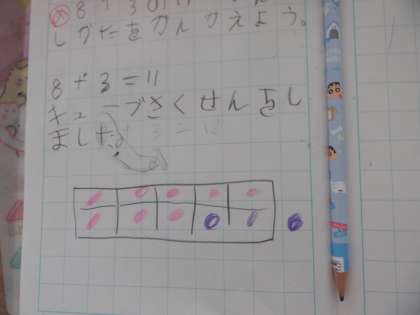 め 8+3の
しかたをかんがえよう。
8+3=11
キューブさくせんをし
ました